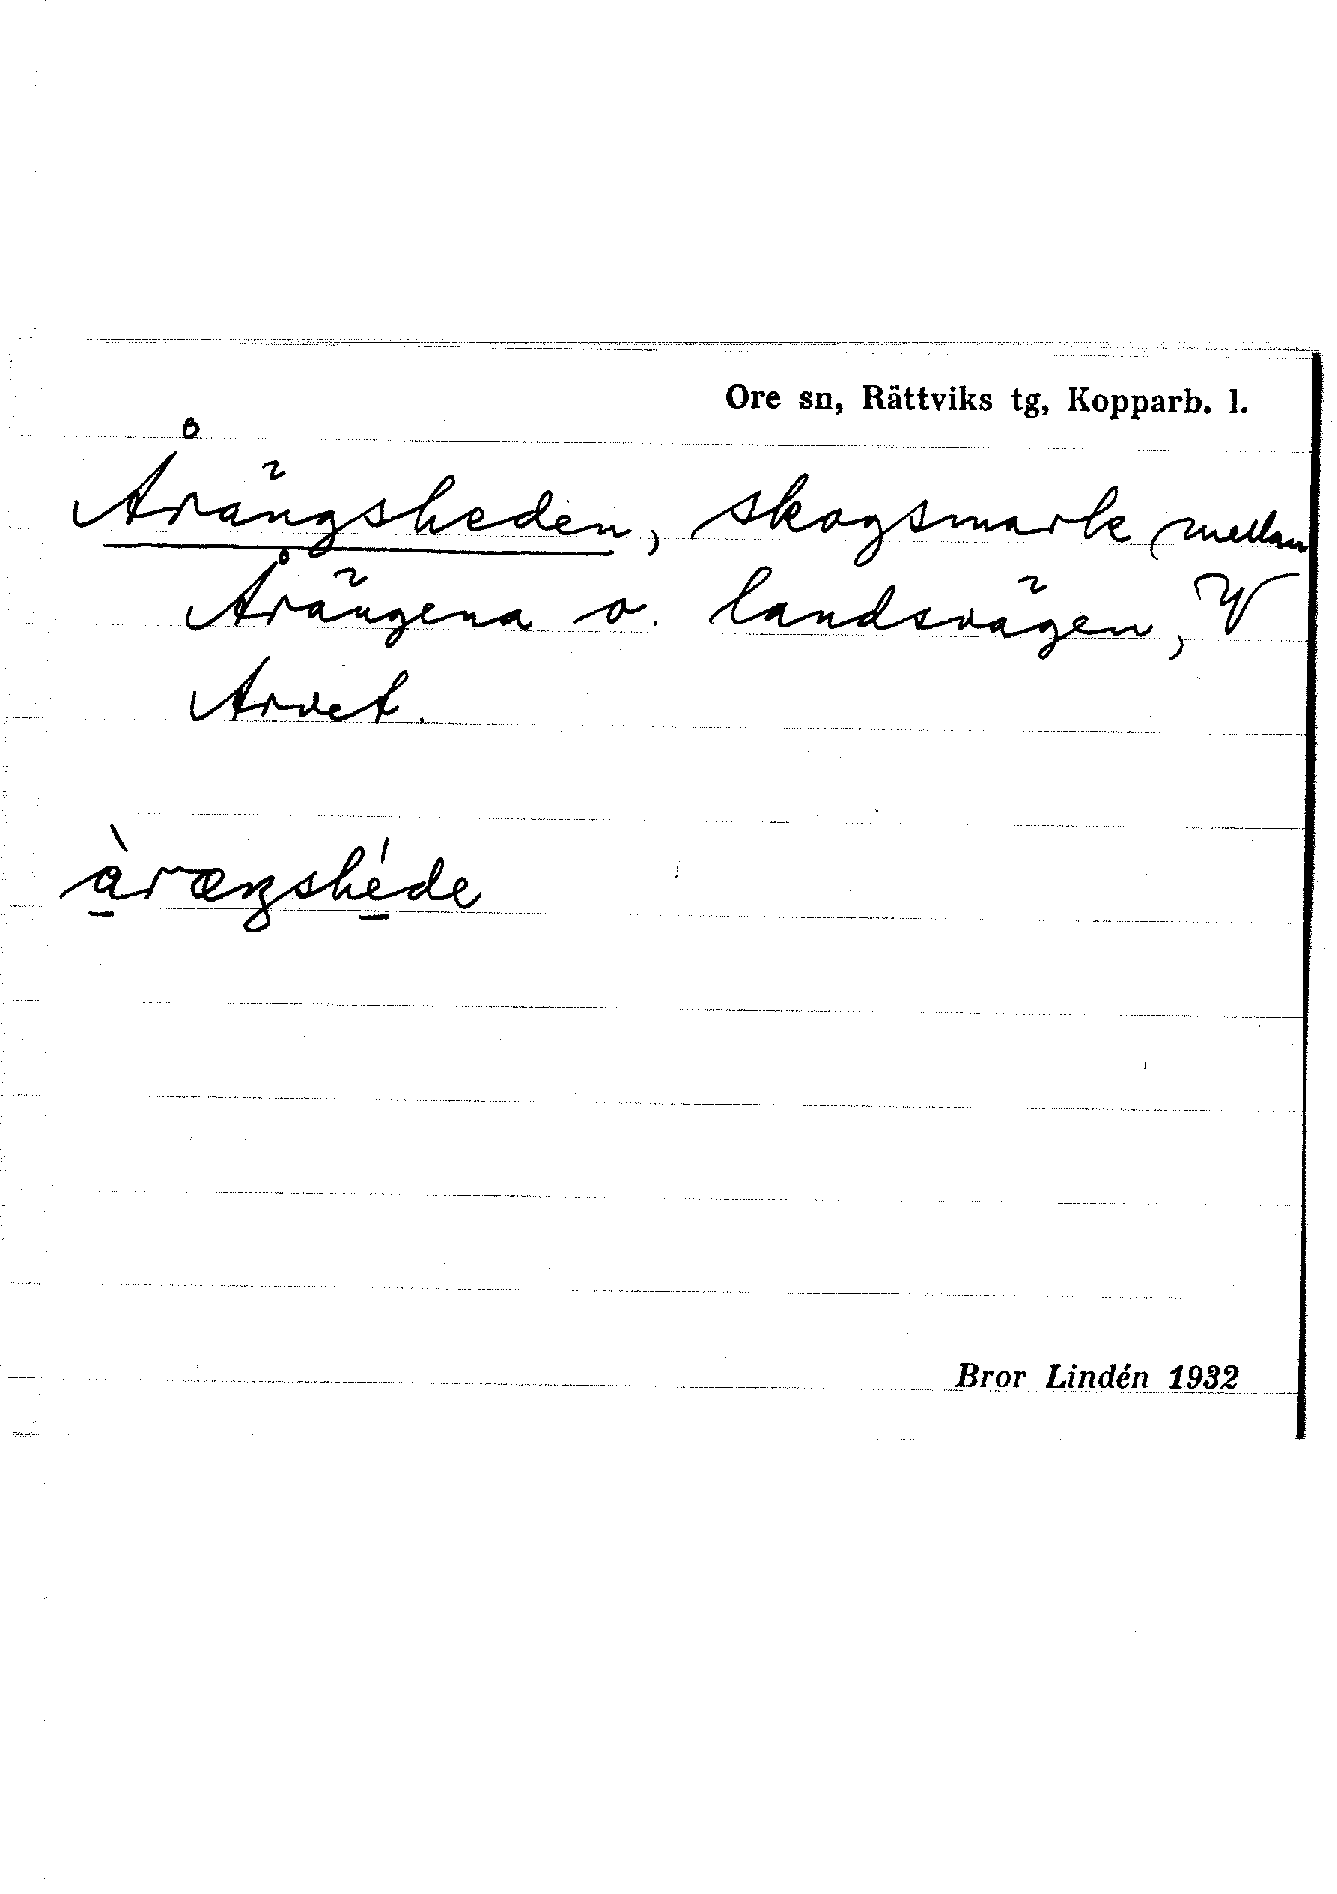 Ore sn, Rättviks tg, Kopparb. l.
Årängsheden, skogsmark mellan
Årängena o. landsvägen, V
Arvet.
àræŋshéde
Bror Lindén 1932